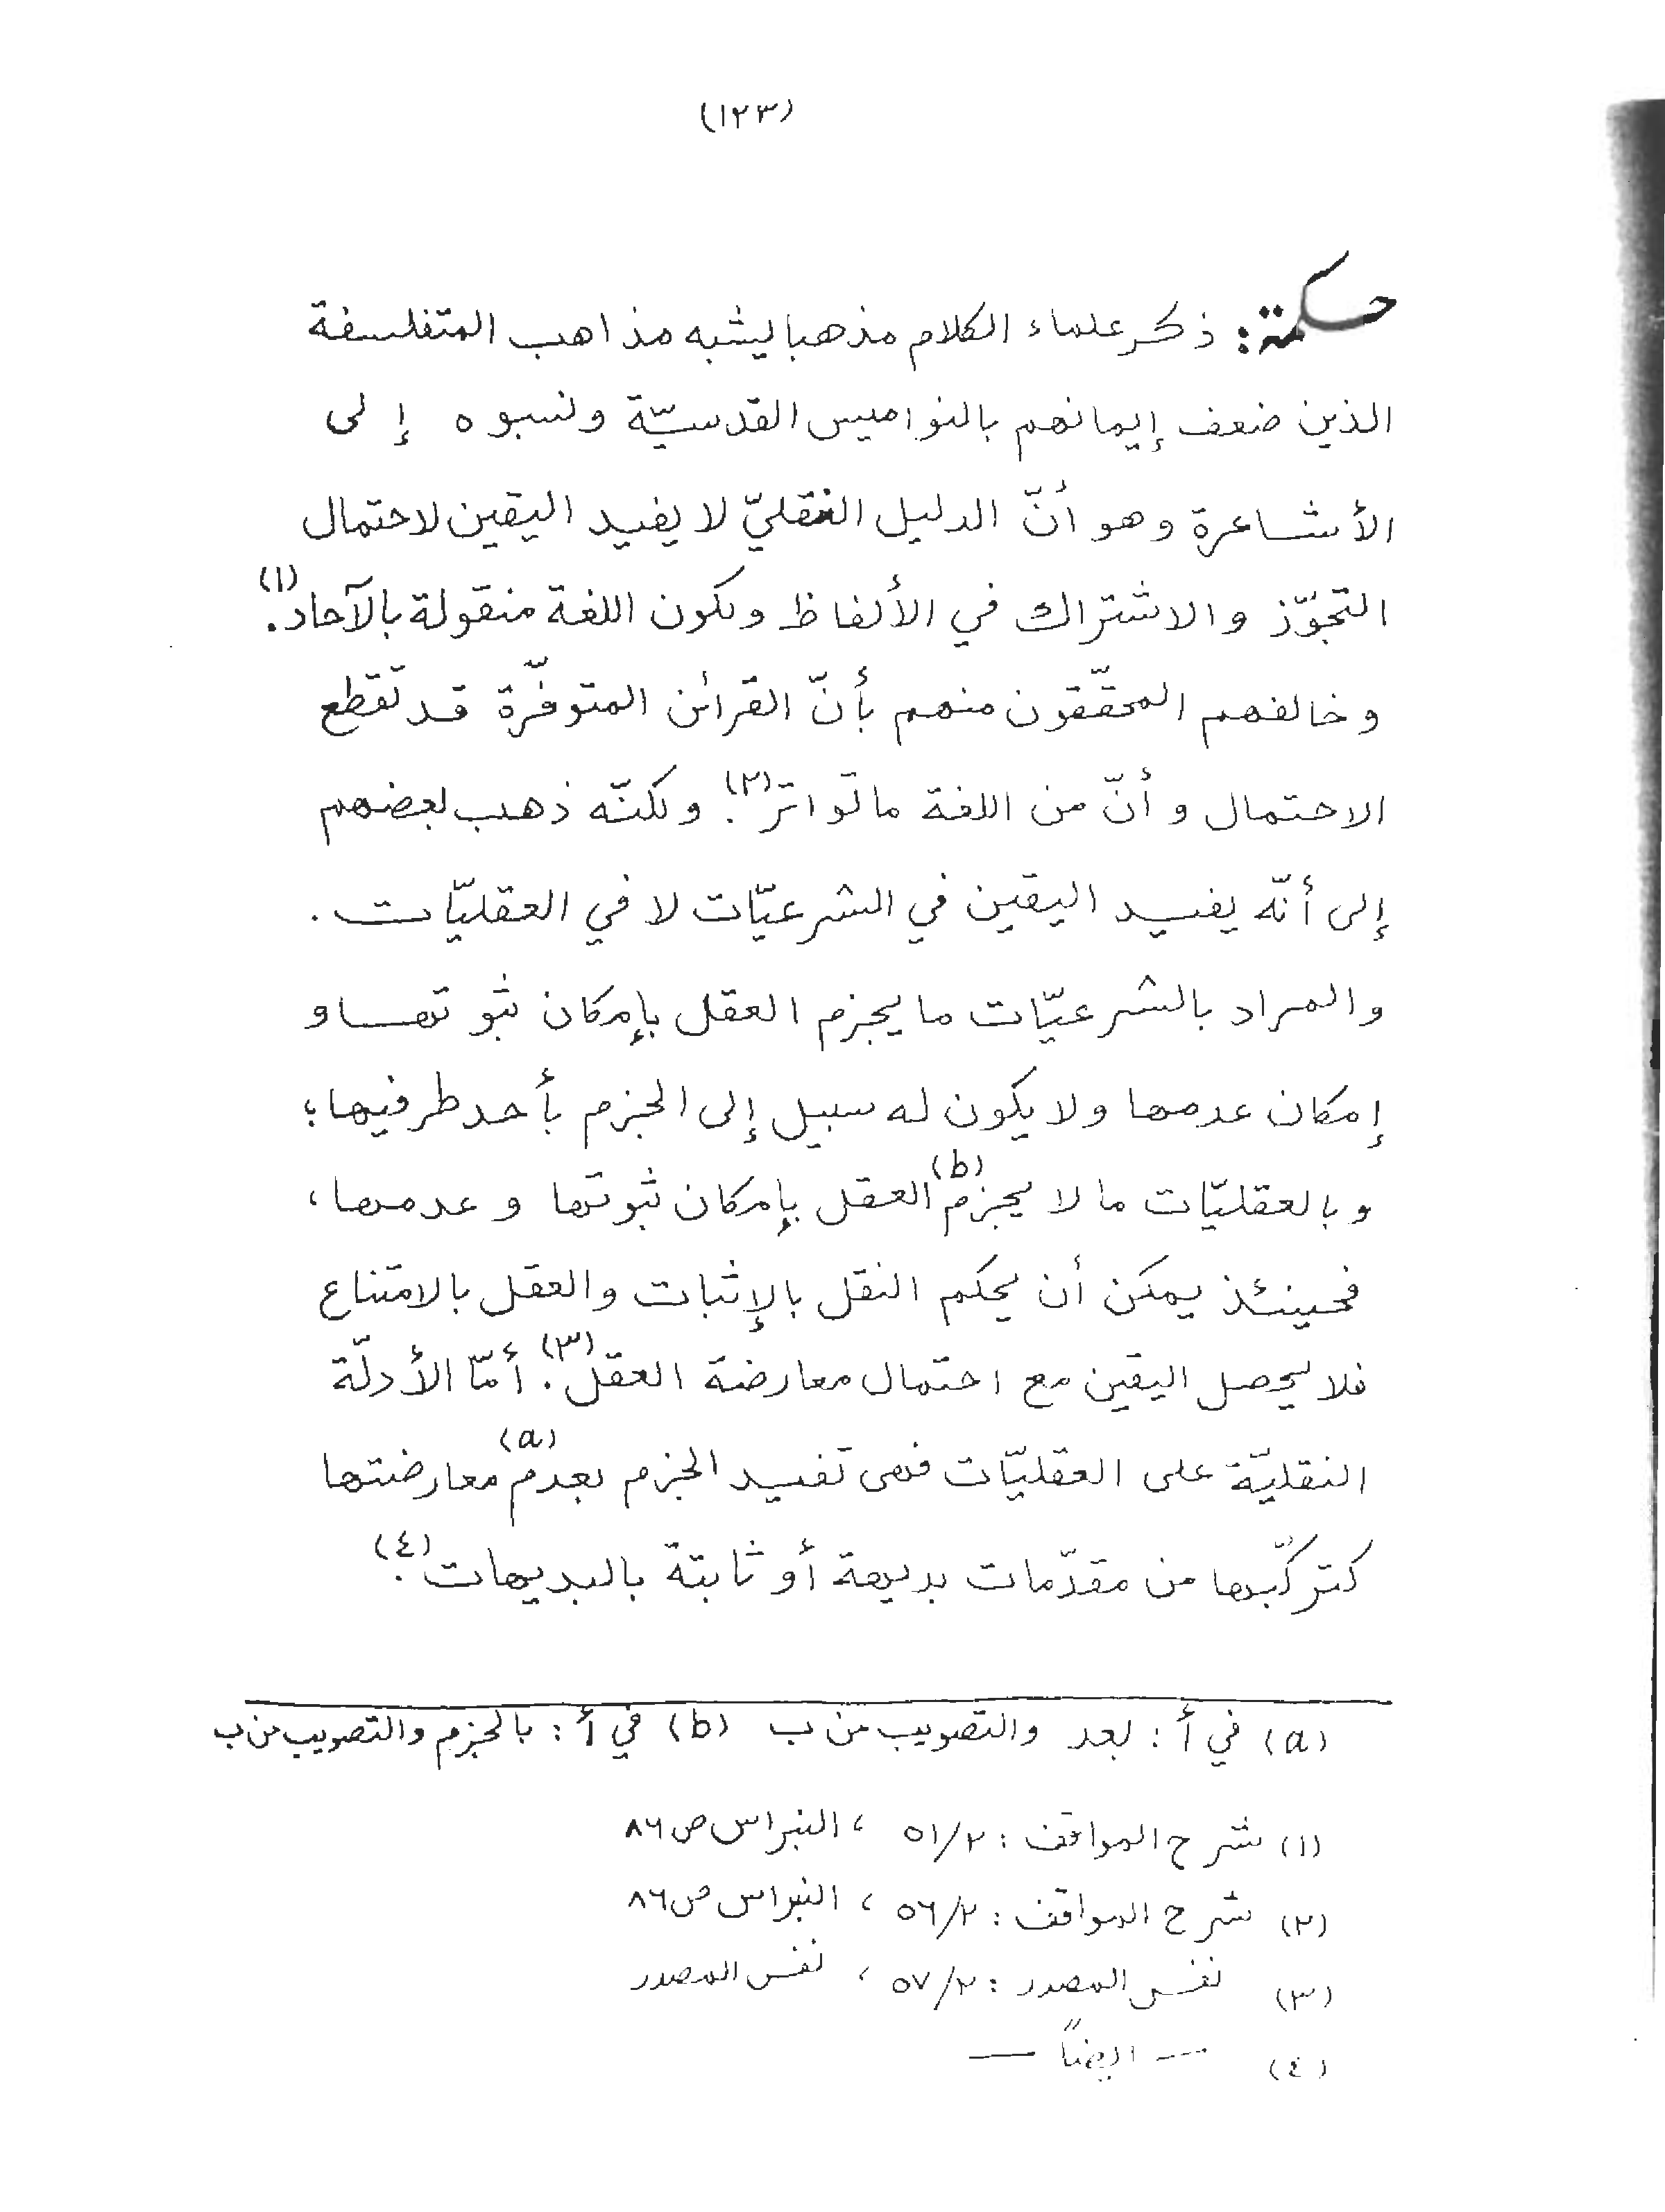 (١٢٣)
حكمة: ذكر علماء الكلام مذهبا يشبه مذاهب المتفلسفة
الذين ضعف إيمانهم بالنواميس القدسيّة ونسبوه إلى
الأشاعرة وهو أنّ الدليل النقليّ لا يفيد اليقين لاحتمال
التجوّز والاشتراك في الألفاظ ولكون اللغة منقولة بالآحاد(١).
وخالفهم المحقّقون منهم بأنّ القرائن المتوفّرة قد تقطع
الاحتمال وأنّ من اللغة ما تواتر(٢). ولكنّه ذهب بعضهم
إلى أنّه يفيد اليقين في الشرعيّات لا في العقليّات.
والمراد بالشرعيّات ما يجزم العقل بإمكان ثبوتها و
إمكان عدمها ولا يكون له سبيل إلى الجزم بأحد طرفيها؛
وبالعقليّات ما لا يجزم(b) العقل بإمكان ثبوتها وعدمها،
فحينئذ يمكن أن يحكم النقل بالإثبات والعقل بالامتناع
فلا يحصل اليقين مع احتمال معارضة العقل(٣). أمّا الأدلّة
النقليّة على العقليّات فهى تفيد الجزم بعدم(a) معارضتها
كتركّبها من مقدّمات بديهة أو ثابتة بالبديهات(٤).
(a) في أ: بعد والتصويب من ب (b) في أ: بالجزم والتصويب من ب
(١) شرح المواقف: ٥١/٢، النبراس ص ٨٦
(٢) شرح المواقف: ٥٦/٢، النبراس ص ٨٦
(٣) نفس المصدر: ٥٧/٢، نفس المصدر
(٤) — ايضاً —